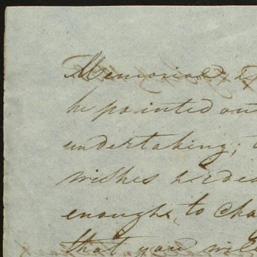 Memorial
he pointed out
undertaking;
wishes
enough to cha
that you wil